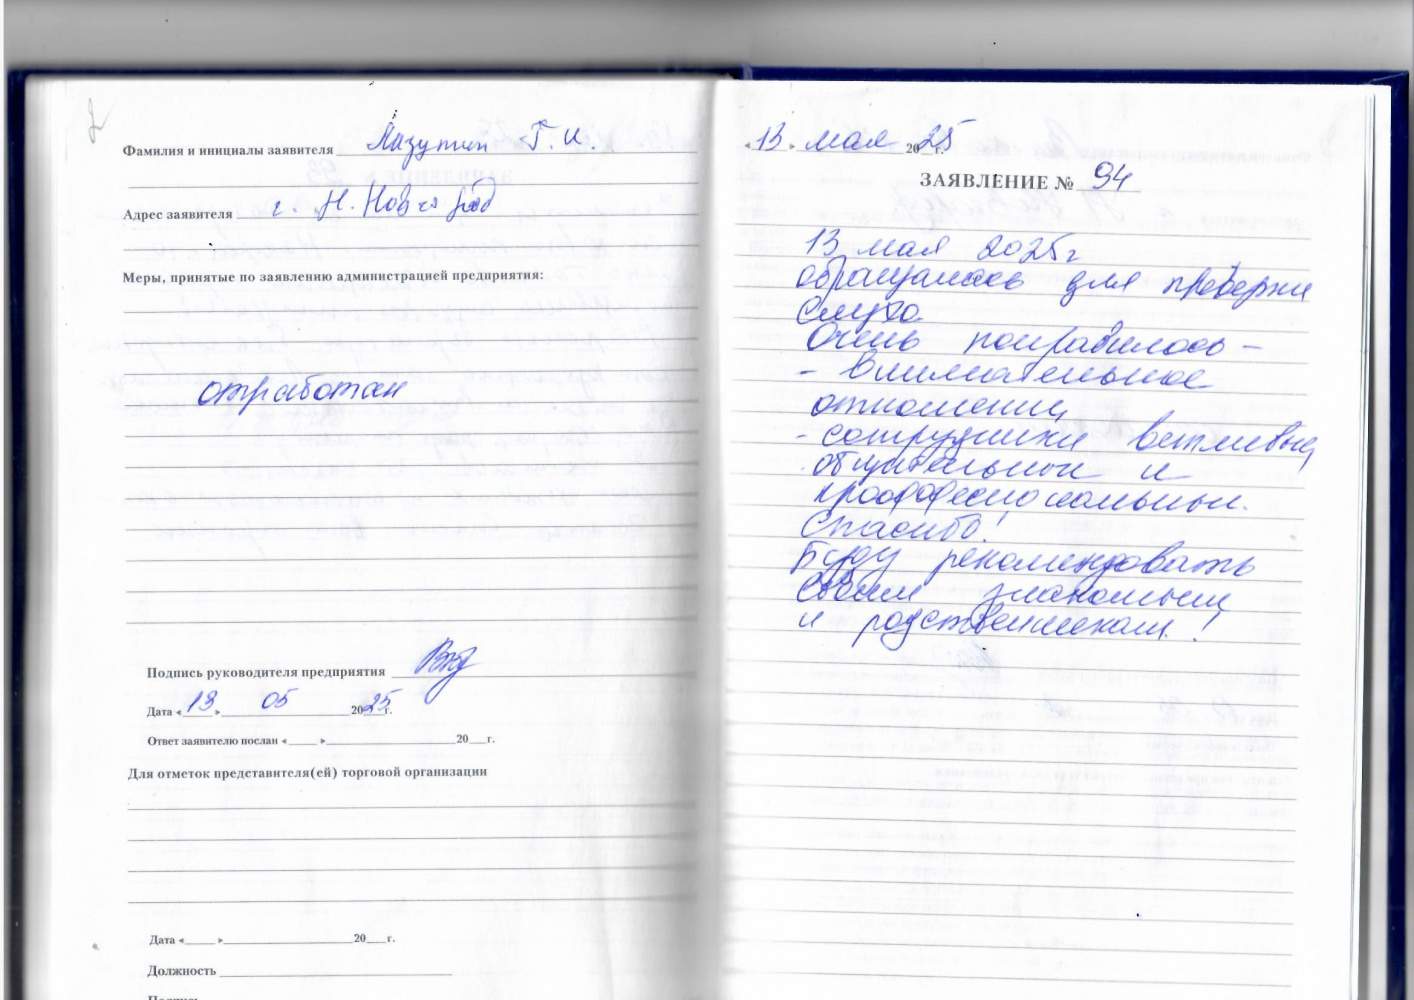 Фамилия и инициалы заявителя Лазутин Г. И.
Адрес заявителя г. Н. Новгород
Меры, принятые по заявлению администрацией предприятия:
отработан
Подпись руководителя предприятия
Дата « 13 » 05 2025 г.
Ответ заявителю послан «____ »____ 20__ г.
Для отметок представителя(ей) торговой организации
Дата «____ »____ 20__ г.
Должность
Подпись
« 13 » мая 2025 г.
ЗАЯВЛЕНИЕ № 94
13 мая 2025г
обращалась для проверки
слуха.
Очень понравилось –
- Внимательное
отношение
- сотрудники вежливые,
общительные и
профессиональные.
Спасибо!
Буду рекомендовать
своим знакомым
и родственникам!